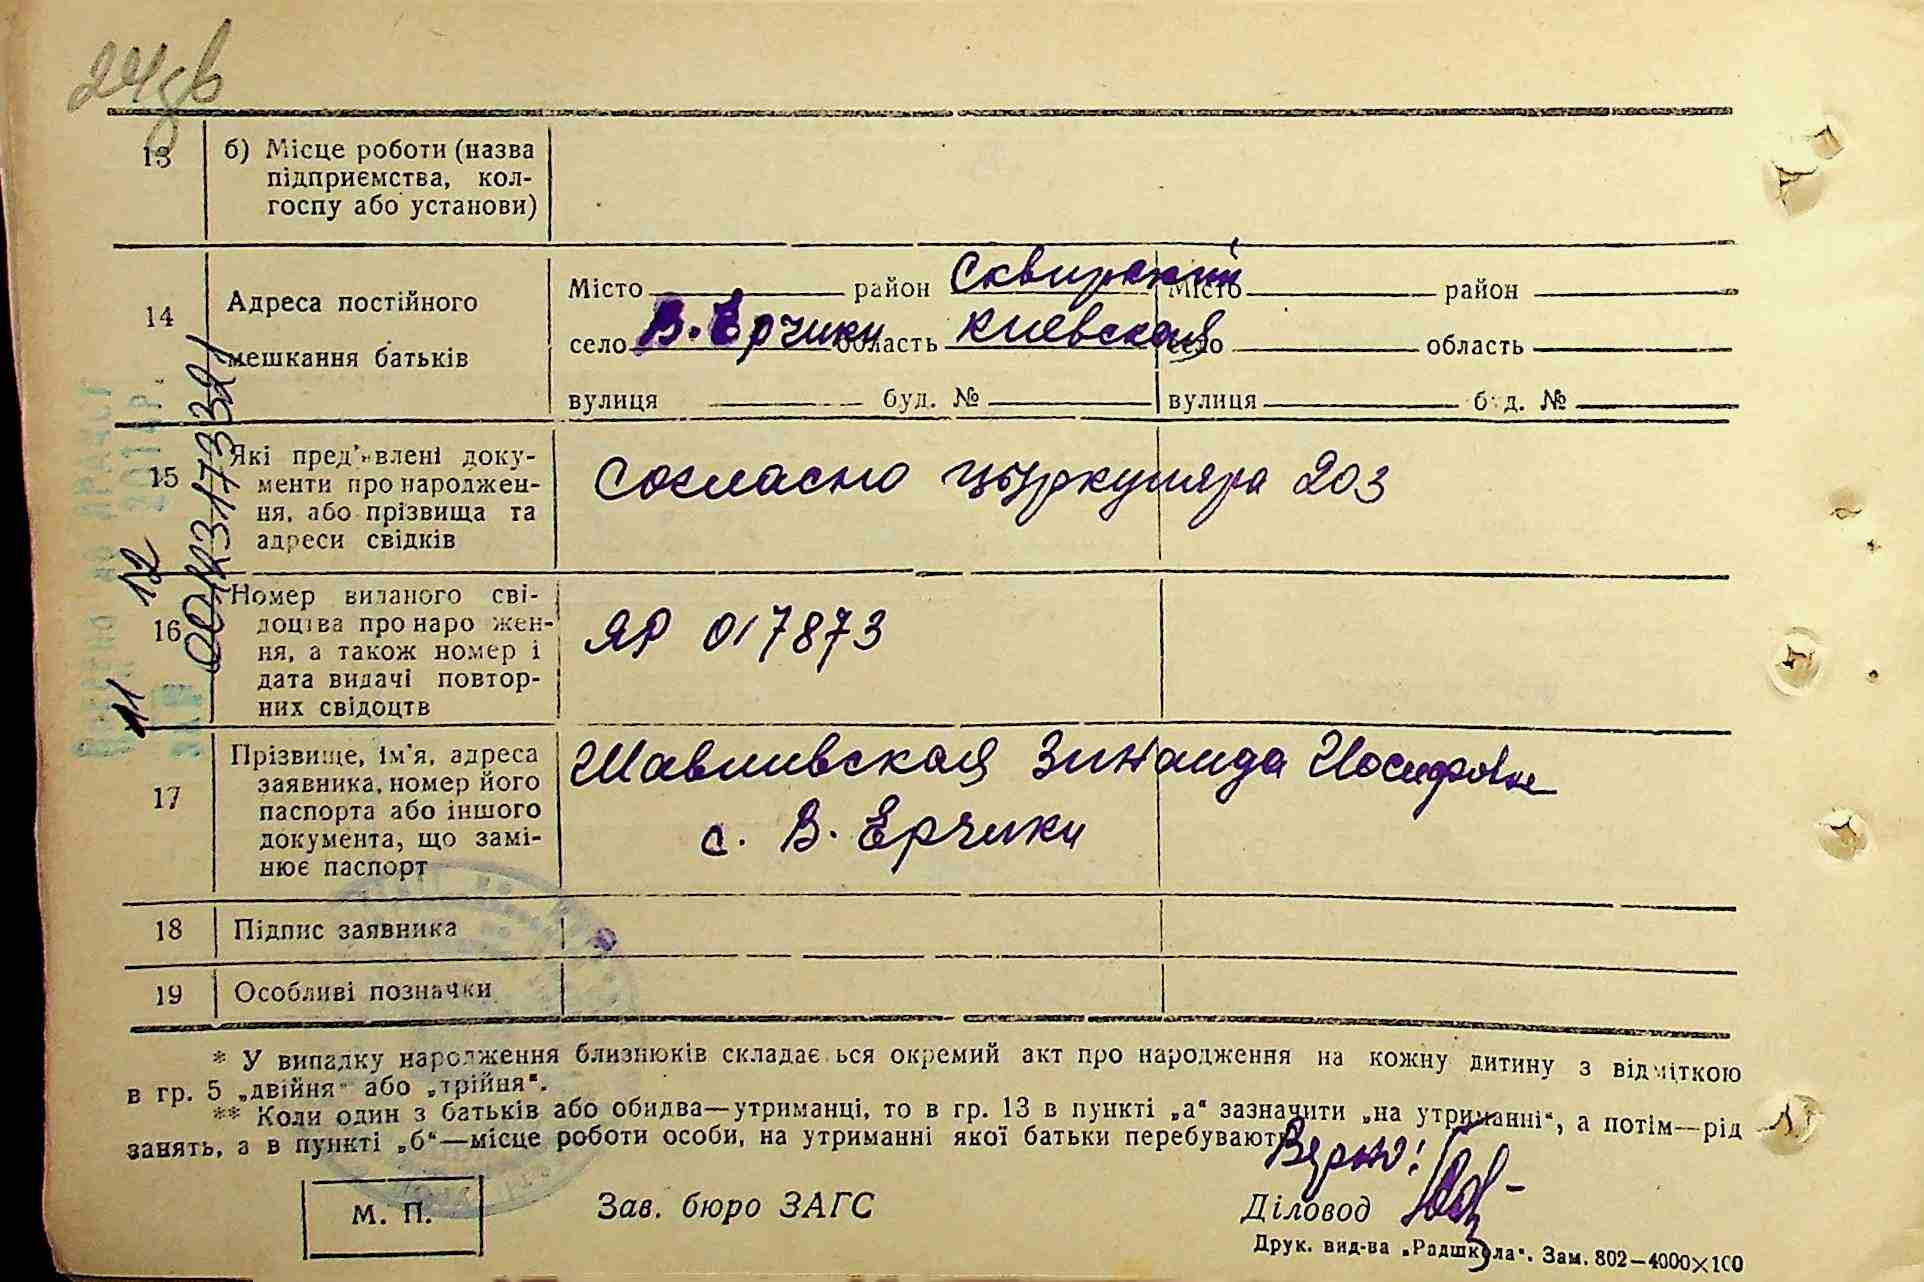 24зв
13
б) Місце роботи (назва
підприємства, кол-
госпу або установи)
14
Адреса постійного
мешкання батьків
Місто район Сквирский
село В. Ерчики область Киевская
вулиця буд. №
Місто район
село область
вулиця буд. №
15
Які пред'явлені доку-
менти про народжен-
ня, або прізвища та
адреси свідків
Согласно цыркуляра 203
16
Номер виданого сві-
доцтва про народжен-
ня, а також номер і
дата видачі повтор-
них свідоцтв
ЯР 017873
17
Прізвище, ім'я, адреса
заявника, номер його
паспорта або іншого
документа, що замі-
нює паспорт
Шавливская Зинаида Иосифовн
с. В. Ерчики
18
Підпис заявника
19
Особливі позначки
* У випадку народження близнюків складається окремий акт про народження на кожну дитину з відміткою
в гр. 5 „двійня“ або „трійня“.
** Коли один з батьків або обидва—утриманці, то в гр. 13 в пункті „а“ зазначити „на утриманні“, а потім—рід
занять, а в пункті „б“—місце роботи особи, на утриманні якої батьки перебувають.
Верно!
М. П.
Зав. бюро ЗАГС
Діловод
Друк. вид-ва „Радшкола“. Зам. 802—4000×100
11 12
00123173321